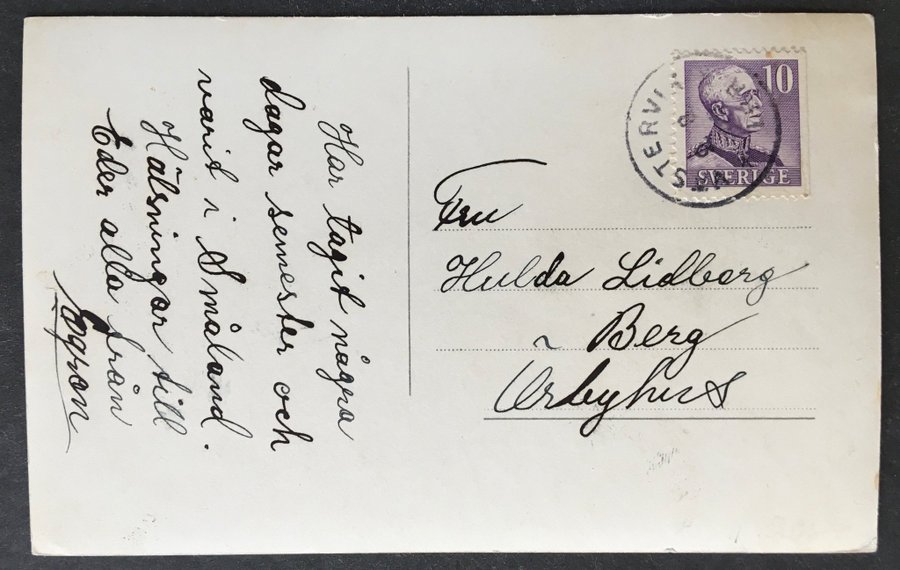 Har tagit några
dagar semester och
varit i Småland.
Hälsningar till
Eder alla från
10
SVERIGE
Fru
Hulda Lidberg
Berg
Örbyhus